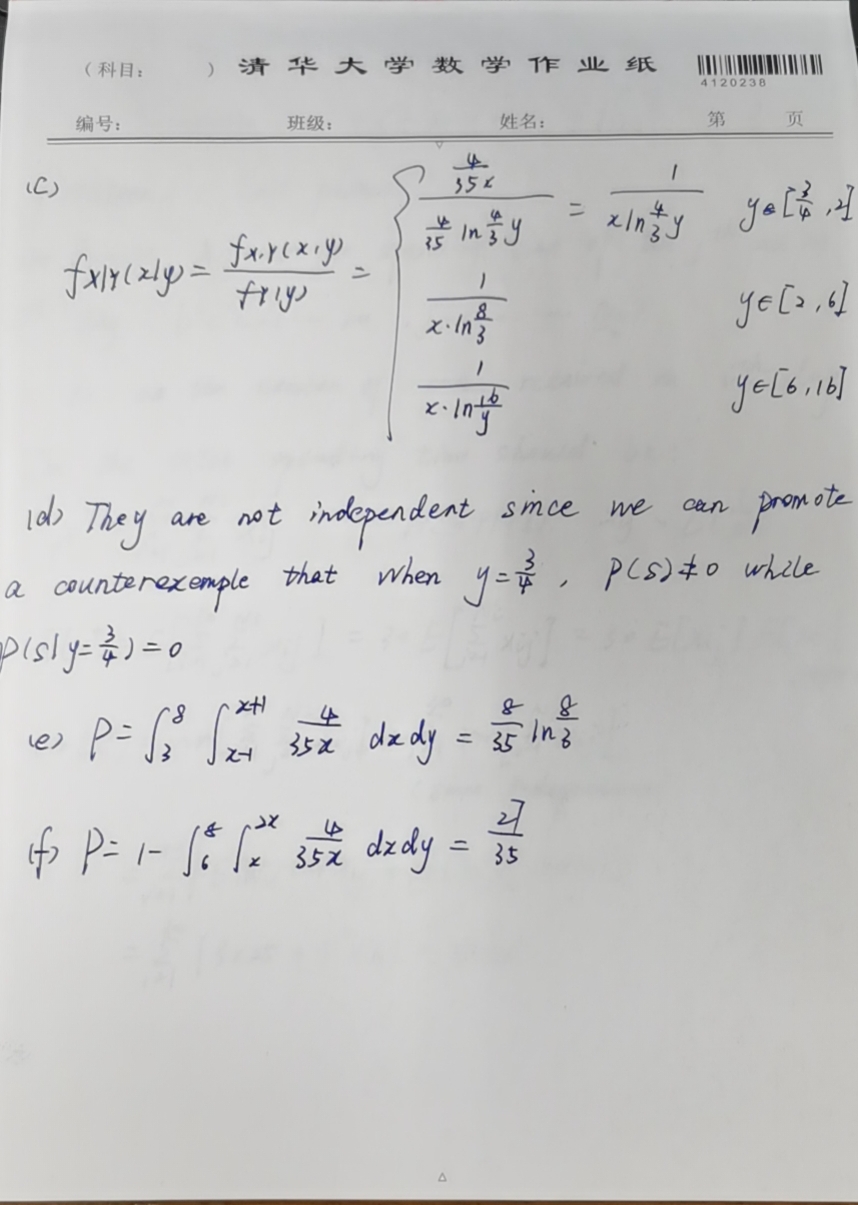 （科目： ） 清华大学数学作业纸
4120238
编号： 班级： 姓名： 第 页
(C)
fX|Y(x|y) = fX,Y(x,y) / fY(y) = { (4/35x) / (4/35 ln 4/3 y) = 1 / (x ln 4/3 y) y∈[3/4, 2]
1 / (x·ln 8/3) y∈[2, 6]
1 / (x·ln 16/y) y∈[6, 16]
(d) They are not independent since we can promote
a counterexemple that when y=3/4, P(S)≠0 while
P(S|y=3/4)=0
(e) P= ∫_3^8 ∫_{x-1}^{x+1} 4/35x dxdy = 8/35 ln 8/3
(f) P= 1- ∫_6^8 ∫_x^{2x} 4/35x dxdy = 27/35